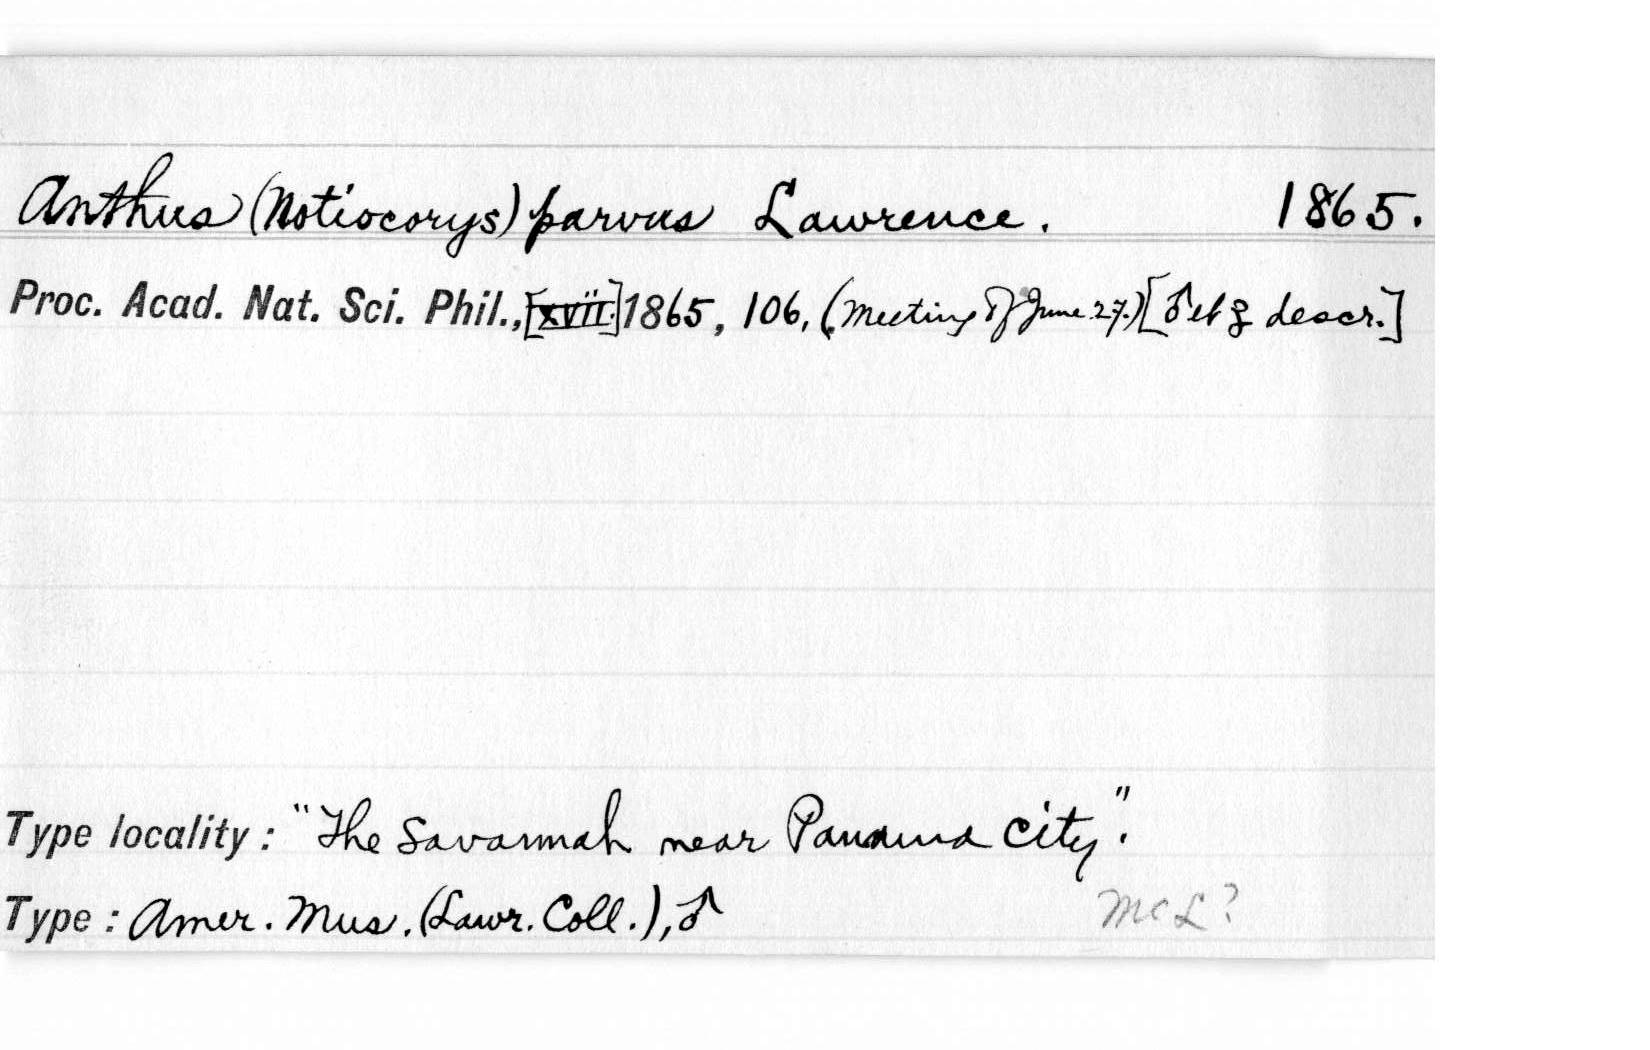 Anthus (Notiocorys) parvus Lawrence. 1865.
Proc. Acad. Nat. Sci. Phil., [xvii.] 1865, 106, (Meeting of June 27.) [♂ et ♀ descr.]
Type locality: "The Savannah near Panama City".
Type: Amer. Mus. (Lawr. Coll.), ♂
McL?